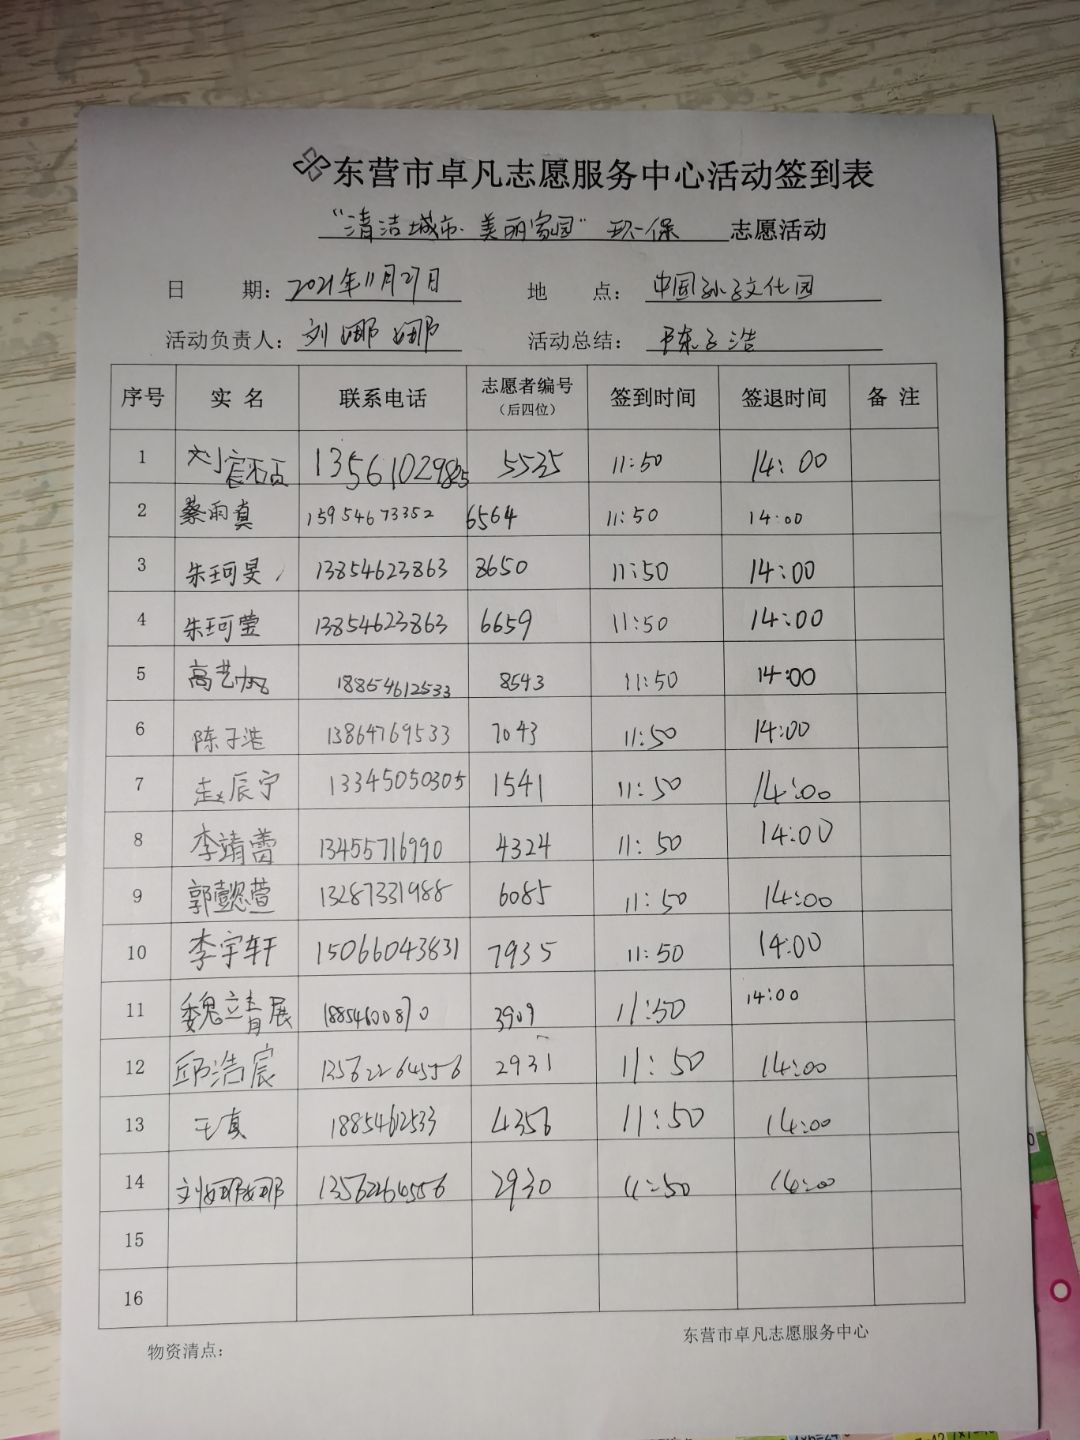 东营市卓凡志愿服务中心活动签到表
“清洁城市·美丽家园”环保 志愿活动
日 期: 2021年11月27日 地 点: 中国孙子文化园
活动负责人: 刘娜娜 活动总结: 陈子浩
序号 实名 联系电话 志愿者编号(后四位) 签到时间 签退时间 备注
1 刘宸 5535 11:50 14:00
2 蔡雨真 15954673352 6564 11:50 14:00
3 朱珂旻 13854623863 8650 11:50 14:00
4 朱珂莹 13854623863 6659 11:50 14:00
5 高艺 18854612533 8543 11:50 14:00
6 陈子浩 13864769533 7043 11:50 14:00
7 赵辰宁 13345050305 1541 11:50 14:00
8 李靖蕾 13455716990 4324 11:50 14:00
9 郭懿萱 13287331988 6085 11:50 14:00
10 李宇轩 15066043831 7935 11:50 14:00
11 魏立青展 18854600870 3909 11:50 14:00
12 邱浩宸 13562264556 2931 11:50 14:00
13 王真 1885462533 4356 11:50 14:00
14 刘娜娜 13562264556 2930 11:50 14:00
15
16
物资清点: 东营市卓凡志愿服务中心